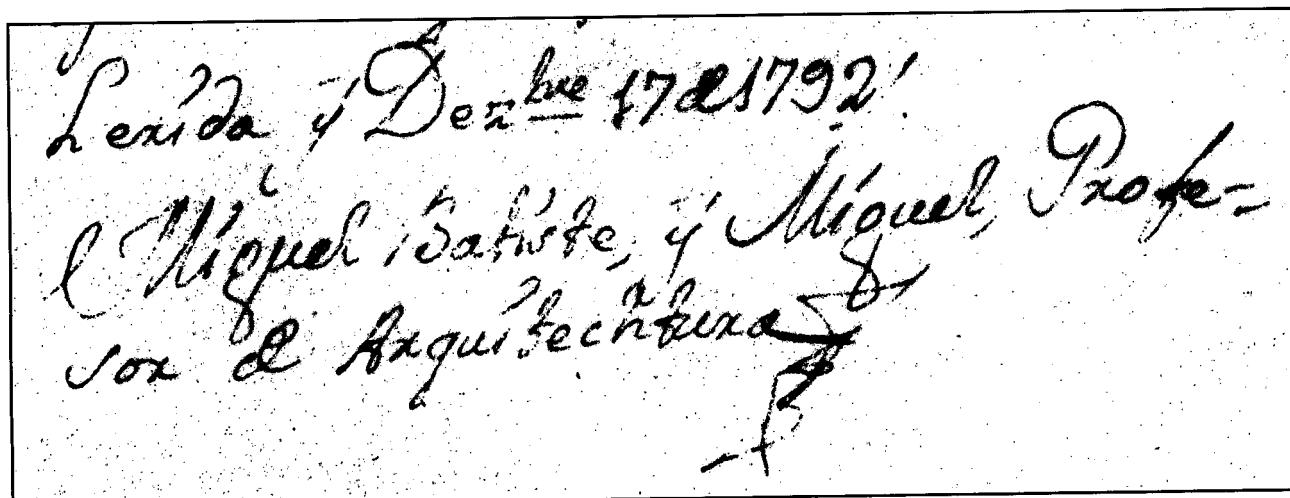 Lerida y Dezbre 17 de 1792
Miguel Batiste, y Miguel, Profe=
sor de Arquitechtura